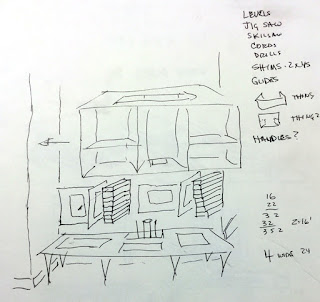 LEVELS
JIG SAW
SKILSAW
CORDS
DRILLS
SHIMS - 2x4s
GLIDES
THING
THING 2
HANDLES?
16
22
32
32
352
2-16'
4 WIDE 24